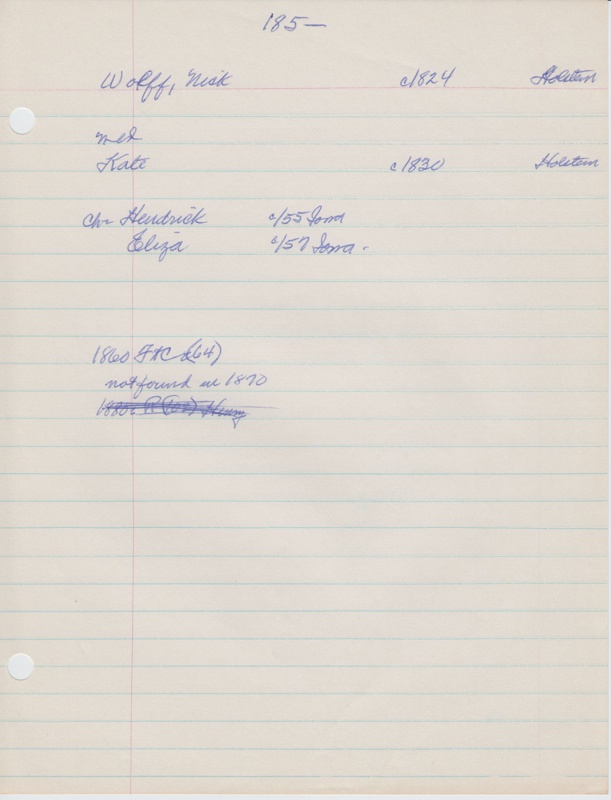 185-
Wolff, Nick c1824 Holstein
med
Kate c1830 Holstein
ch- Hendrick c/55 Iowa
Eliza c/57 Iowa -
1860 (64)
not found in 1870
Henry